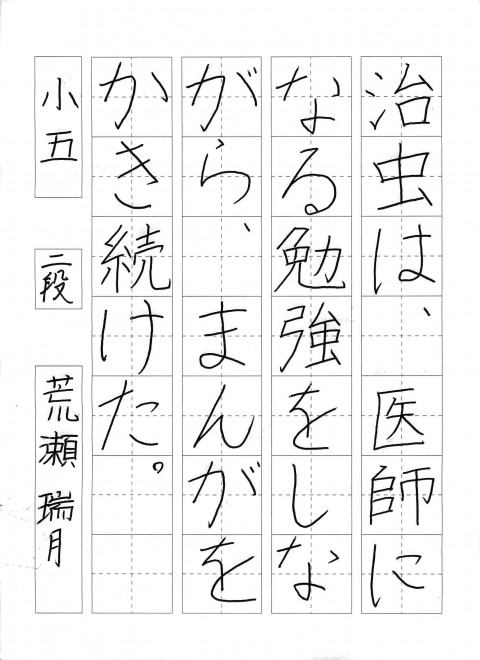 治虫は、医師に
なる勉強をしな
がら、まんがを
かき続けた。
小五
二段
荒瀬瑞月